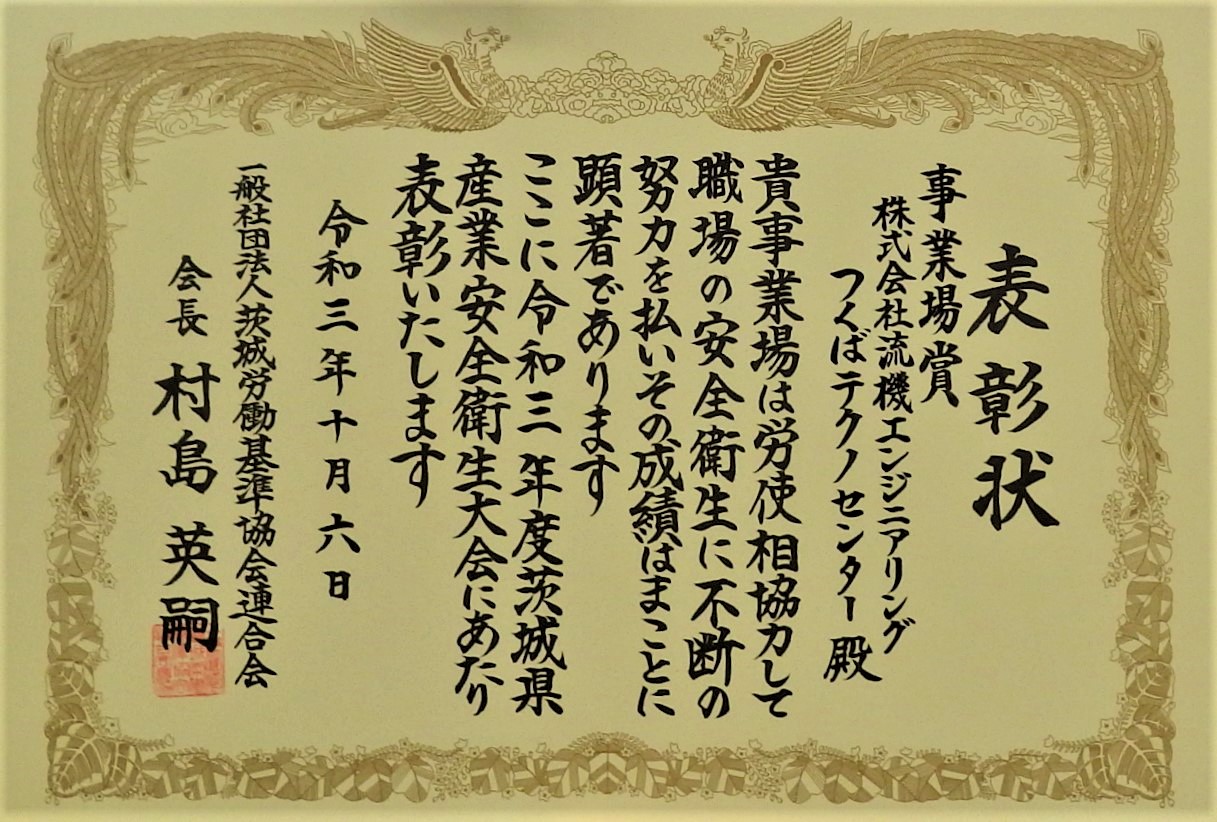 表彰状
事業場賞
株式会社流機エンジニアリング
つくばテクノセンター 殿
貴事業場は労使相協力して
職場の安全衛生に不断の
努力を払いその成績はまことに
顕著であります
ここに令和三年度茨城県
産業安全衛生大会にあたり
表彰いたします
令和三年十月六日
一般社団法人茨城労働基準協会連合会
会長 村島英嗣